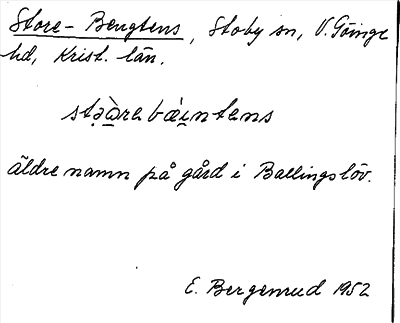 Store-Bengtens, Stoby sn, V. Göinge
hd, Krist. län.
stə̀ɑ̀rabǽi̯ntəns
äldre namn på gård i Ballingslöv.
E. Bergenrud 1952